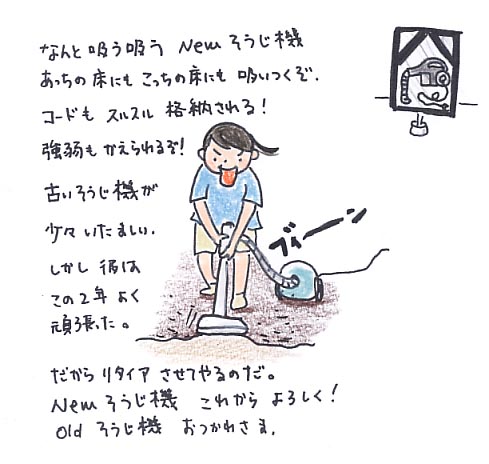 なんと 吸う吸う New そうじ機
あっちの床にも こっちの床にも 吸いつくぞ.
コードも スルスル 格納される!
強弱も かえられるぞ!
古いそうじ機が
少々 いたましい.
しかし 彼は
この2年 よく
頑張った。
ブィーーン
だから リタイア させてやるのだ。
New そうじ機 これから よろしく!
Old そうじ機 おつかれさま.